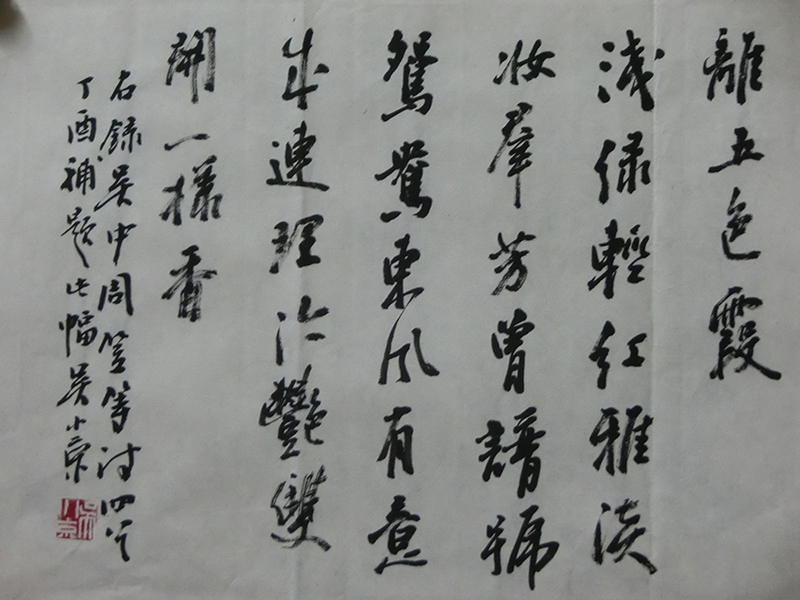 離五色霞
淺綠輕紅雅淡
妝群芳曾譜號
鴛鴦東風有意
成連理冶艷雙
開一樣香
右錄吳中周笠等诗四首
丁酉補題此幅吳小